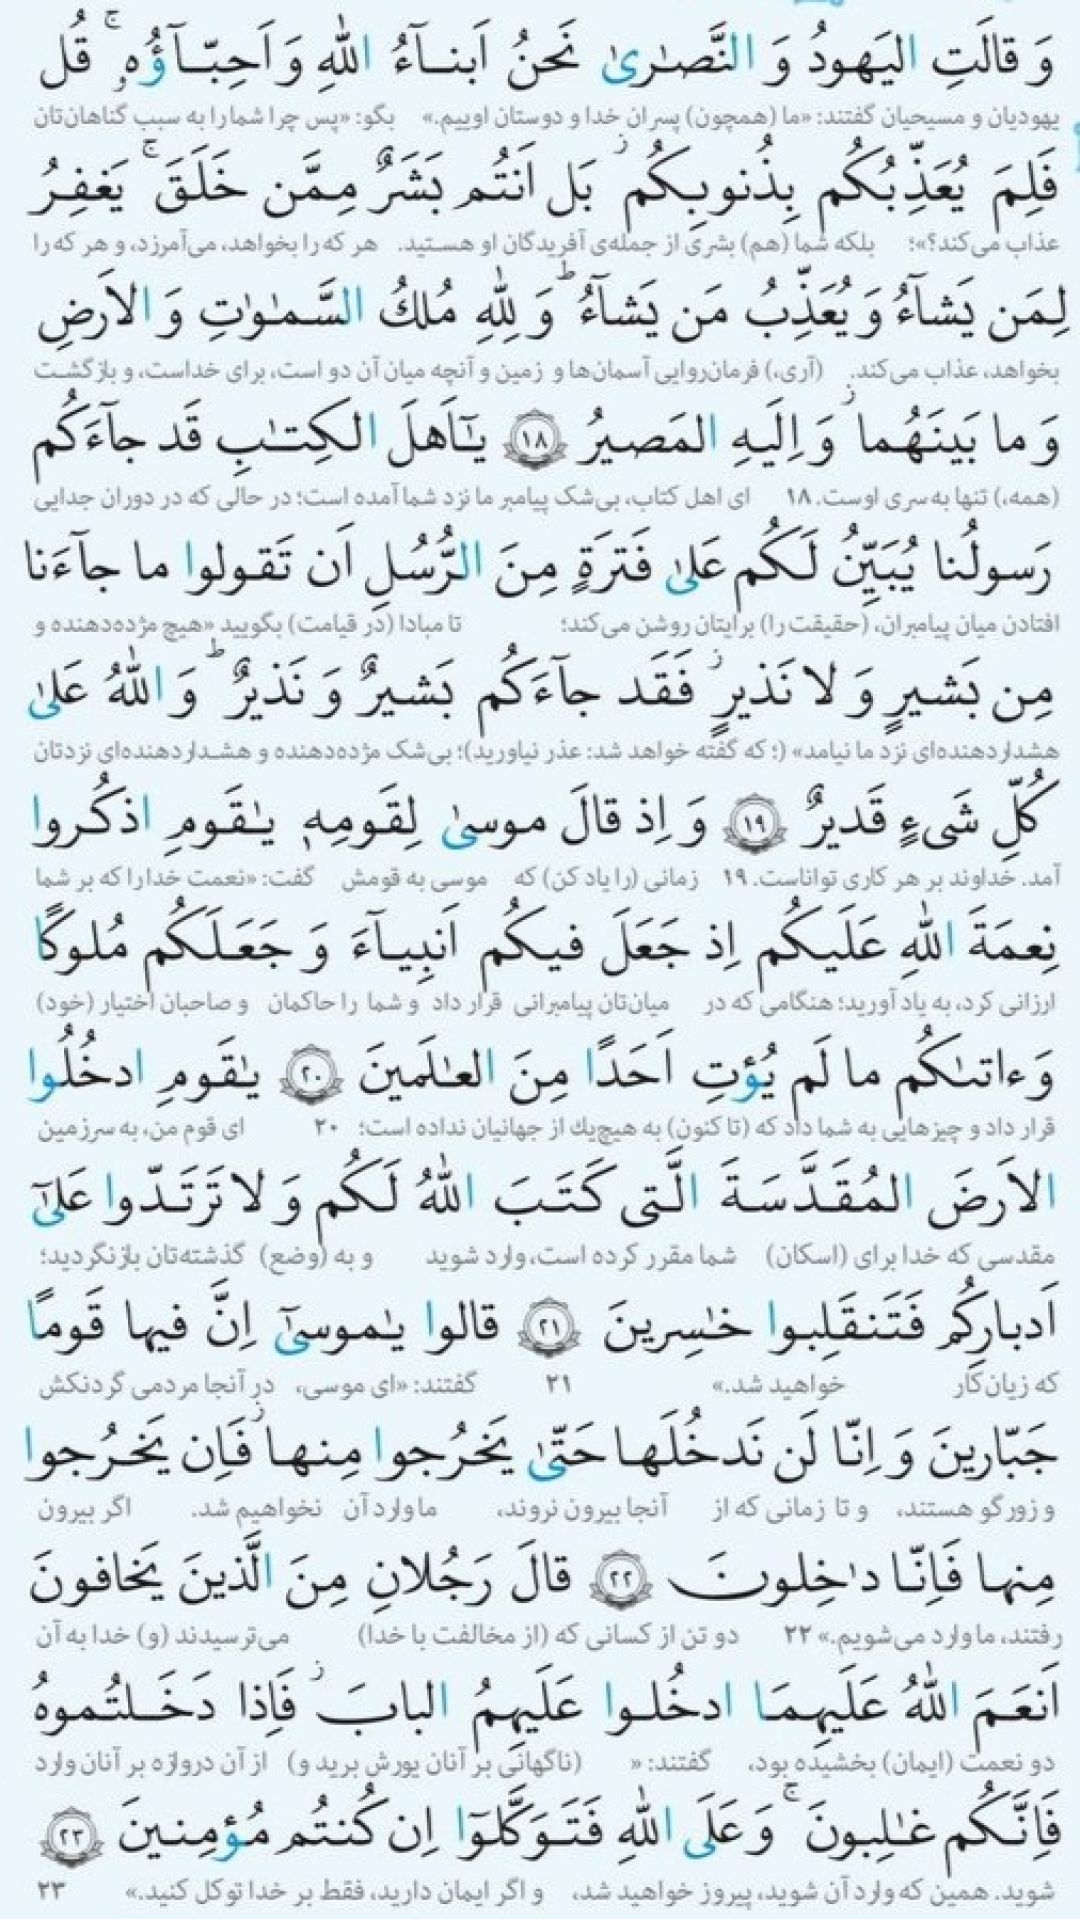 وَ قالَتِ اليَهودُ وَ النَّصـٰرىٰ نَحنُ اَبنـآءُ اللّٰهِ وَ اَحِبّـآؤُهۥ ۚ قُل
یهودیان و مسیحیان گفتند: «ما (همچون) پسران خدا و دوستان اوییم.» بگو: «پس چرا شما را به سبب گناهان‌تان
فَلِمَ يُعَذِّبُكُم بِذُنوبِكُم ۖ بَل اَنتُم بَشَرٌ مِمَّن خَلَقَ ۚ يَغفِرُ
عذاب می‌کند؟»؛ بلکه شما (هم) بشری از جمله‌ی آفریدگان او هستید. هر که را بخواهد، می‌آمرزد، و هر که را
لِمَن يَشآءُ وَ يُعَذِّبُ مَن يَشآءُ ۗ وَ لِلّٰهِ مُلكُ السَّمـٰوٰتِ وَ الاَرضِ
بخواهد، عذاب می‌کند. (آری،) فرمان‌روایی آسمان‌ها و زمین و آنچه میان آن دو است، برای خداست، و بازگشت
وَ ما بَينَهُما ۖ وَ اِلَيهِ المَصيرُ ۱۸ يـٰٓاَهلَ الكِتـٰبِ قَد جآءَكُم
(همه،) تنها به سری اوست. ۱۸ ای اهل کتاب، بی‌شک پیامبر ما نزد شما آمده است؛ در حالی که در دوران جدایی
رَسولُنا يُبَيِّنُ لَكُم عَلىٰ فَترَةٍ مِنَ الرُّسُلِ اَن تَقولوا ما جآءَنا
افتادن میان پیامبران، (حقیقت را) برایتان روشن می‌کند؛ تا مبادا (در قیامت) بگویید «هیچ مژده‌دهنده و
مِن بَشيرٍ وَ لا نَذيرٍ ۖ فَقَد جآءَكُم بَشيرٌ وَ نَذيرٌ ۗ وَ اللّٰهُ عَلىٰ
هشداردهنده‌ای نزد ما نیامد» (؛ که گفته خواهد شد: عذر نیاورید)؛ بی‌شک مژده‌دهنده و هشداردهنده‌ای نزدتان
كُلِّ شَیءٍ قَديرٌ ۱۹ وَ اِذ قالَ موسىٰ لِقَومِهٖ يـٰقَومِ اذكُروا
آمد. خداوند بر هر کاری تواناست. ۱۹ زمانی (را یاد کن) که موسی به قومش گفت: «نعمت خدا را که بر شما
نِعمَةَ اللّٰهِ عَلَيكُم اِذ جَعَلَ فيكُم اَنبِيـآءَ وَ جَعَلَكُم مُلوكًا
ارزانی کرد، به یاد آورید؛ هنگامی که در میان‌تان پیامبرانی قرار داد و شما را حاکمان و صاحبان اختیار (خود)
وَ ءاتىٰكُم ما لَم يُؤتِ اَحَدًا مِنَ العـٰلَمينَ ۲۰ يـٰقَومِ ادخُلُوا
قرار داد و چیزهایی به شما داد که (تا کنون) به هیچ‌یک از جهانیان نداده است؛ ۲۰ ای قوم من، به سرزمین
الاَرضَ المُقَدَّسَةَ الَّتی كَتَبَ اللّٰهُ لَكُم وَ لا تَرتَدّوا عَلىٰٓ
مقدسی که خدا برای (اسکان) شما مقرر کرده است، وارد شوید و به (وضع) گذشته‌تان بازنگردید؛
اَدبارِكُم فَتَنقَلِبوا خـٰسِرينَ ۲۱ قالوا يـٰموسىٰٓ اِنَّ فيها قَومًا
که زیان‌کار خواهید شد.» ۲۱ گفتند: «ای موسی، در آنجا مردمی گردنکش
جَبّارينَ وَ اِنّا لَن نَدخُلَها حَتّىٰ يَخرُجوا مِنها ۖ فَاِن يَخرُجوا
و زورگو هستند، و تا زمانی که از آنجا بیرون نروند، ما وارد آن نخواهیم شد. اگر بیرون
مِنها فَاِنّا دٰخِلونَ ۲۲ قالَ رَجُلانِ مِنَ الَّذينَ يَخافونَ
رفتند، ما وارد می‌شویم.» ۲۲ دو تن از کسانی که (از مخالفت با خدا) می‌ترسیدند (و) خدا به آن
اَنعَمَ اللّٰهُ عَلَيهِمَا ادخُلوا عَلَيهِمُ البابَ ۖ فَاِذا دَخَلتُموهُ
دو نعمت (ایمان) بخشیده بود، گفتند: « (ناگهانی بر آنان یورش برید و) از آن دروازه بر آنان وارد
فَاِنَّكُم غـٰلِبونَ ۚ وَ عَلَى اللّٰهِ فَتَوَكَّلوٓا اِن كُنتُم مُؤمِنينَ ۲۳
شوید. همین که وارد آن شوید، پیروز خواهید شد، و اگر ایمان دارید، فقط بر خدا توکل کنید.» ۲۳